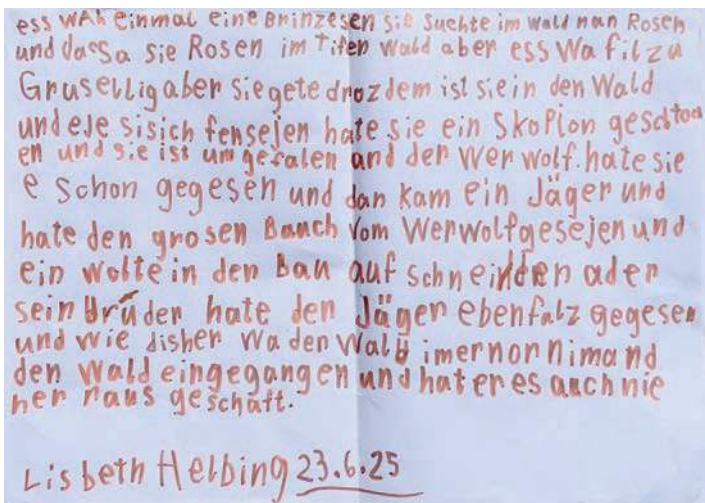 ess wAh einmal eine Brinzesen sie suchte im wald nan Rosen
und dacsa sie Rosen im Tifen wald aber ess wa filzu
Gruselligaber siegete drozdem ist siein den Wald
und eje sisich fensejen hate sie ein Skopion geschtoch
en und sie ist um gefalen and der Wer wolf. hate sie
e schon gegesen und dan kam ein Jäger und
hate den grosen Bauch vom Werwolfgesejen und
ein wolte in den Bau auf schneinden ader
sein brüder hate den Jäger ebenfalz gegesen
und wie disher wa den Wald imernornimand
den Wald eingegangen und hat er es auch nie
her raus geschaft.
Lisbeth Helbing 23.6.25